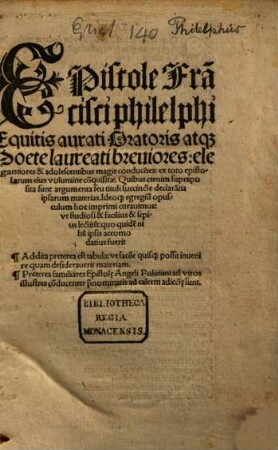 Epist 140 Philelphus
EPistole Frā
cisci philelphi
Equitis aurati Oratoris atqꝫ
Poete laureati breuiores: ele
gantiores & adolescentibus magis conducētes: ex toto episto
larum eius volumine cōquisitæ. Quibus etenim suprapo
sita sunt argumenta seu tituli succincte declarātia
ipsarum materias. Ideoqꝫ egregiū opus
culum hoc imprimi curauimus:
vt studiosi & facilius & sepi
us lectitēt: quo quidē ni
hil ipsis accomo
datius fuerit
¶ Addita preterea est tabula: vt facile quisqꝫ possit inueni
re quam desiderauerit materiam.
¶ Preterea familiares Epistolę Angeli Politiani ad viros
illustres cōducenter
ad calcem adiectę sunt.
BIBLIOTHECA
REGIA
MONACENSIS.